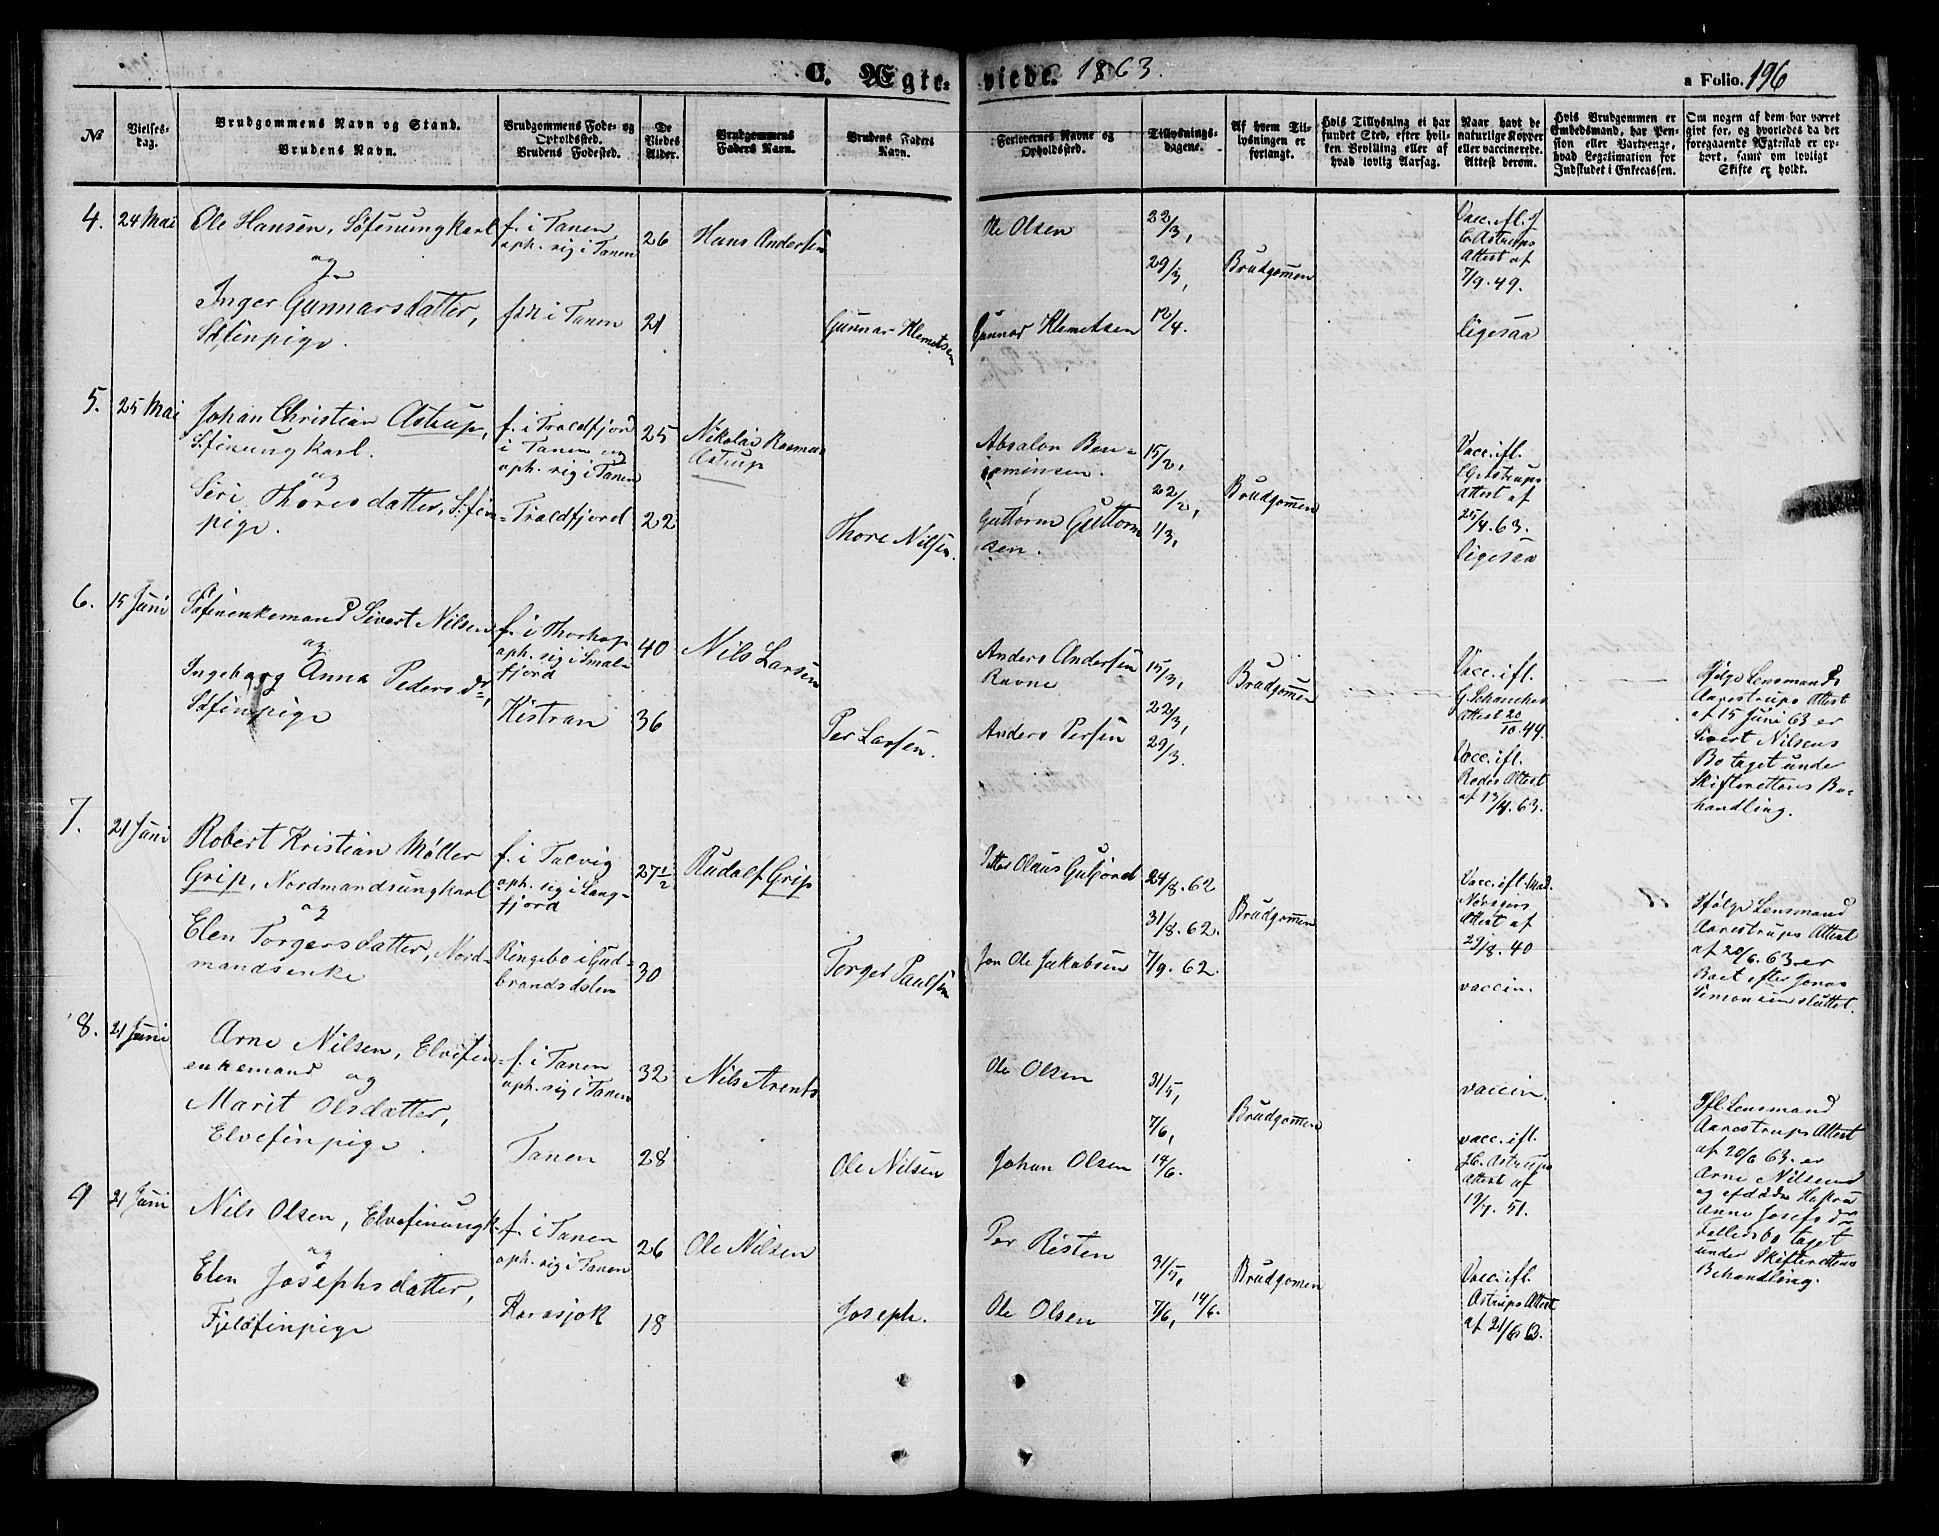 C. Ægte-viede. 1863.
a Folio. 196
No
Vielses-dag.
Brudgommens Navn og Stand.
Brudens Navn.
Brudgommens Føde- og
Opholdssted.
Brudens Fødested.
De
Viedes
Alder.
Brudgommens
Faders Navn.
Brudens Faders
Navn.
Forlovernes Navne og
Opholdssted.
Tillysnings-
dagene.
Af hvem Til-
lysningen er
forlangt.
Hvis Tillysning ei har
fundet Sted, efter hvil-
ken Bevilling eller af
hvad lovlig Aarsag.
Naar havt de
naturlige Kopper
eller vaccinerede.
Attest derom.
Hvis Brudgommen er
Embedsmand, har Pen-
sion eller Vartpenge,
hvad Legitimation for
Indskudet i Enkecassen.
Om nogen af dem har været
givt før, og hvorledes da det
foregaaende Ægteskab er op-
hørt, samt om lovligt
Skifte er holdt.
4. 24 Mai
Ole Hansen, Søfinungkarl
og
Inger Gunnarsdatter,
Søfinpige.
f. i Tanen
oph. sig i Tanen
født i Tanen
26
21
Hans Andersen
Gunnar Klemetsen
Ole Olsen
Gunnar Klemetsen
22/3,
29/3,
12/4.
Brudgommen
Vacc. ifl.
Astrups
Attest af
7/9. 49.
ligesaa
5. 25 Mai
Johan Christian Astrup,
Søfinungkarl.
og
Siri Thoresdatter, Søfin-
pige.
f. i Traldfjord
i Tanen og
oph. sig i Tanen
Traldfjord
25
22
Nikolai Rasmus
Astrup
Thore Nilsen.
Absalon Ben-
jaminsen.
Guttorm Guttorm
sen.
15/2,
22/2,
1/3,
Brudgommen
Vacc. ifl.
Astrups
Attest af
25/4. 63.
ligesaa
6. 15 Juni
Søfinenkemand Sivert Nilsen
og
Ingeborg Anna Pedersdr,
Søfinpige
f. i Thorhop
oph. sig i Smal-
fjord
Kistran
40
36
Nils Larsen
Per Larsen.
Anders Andersen
Ravne
Anders Persen
15/3,
22/3,
29/3.
Brudgommen
Vacc. ifl.
G. Schanches
Attest 20/10. 44.
Vacc. ifl.
Rodes Attest
af 13/4. 63.
Ifølge Lensmand
Aarestrups Attest
af 15 Juni 63 er
Sivert Nilsens
Bo taget under
Skifterettens Be-
handling.
7. 21 Juni
Robert Kristian Møller
Grip, Nordmandsungkarl
og
Elen Torgersdatter, Nord-
mandsenke
f. i Talvig
oph. sig i Lang-
fjord
Ringebo i Gud-
brandsdalen
27½
30
Rudolf Grip
Torger Paulsen
Petter Olaus Gulfjord
Jon Ole Jakobsen
24/8. 62
31/8. 62.
7/9. 62.
Brudgommen
Vacc. ifl. Mad.
Noragers
Attest af
29/8. 40
vaccin.
Ifølge Lensmand
Aarestrups Attest
af 20/6. 63. er
Boet efter Jonas
Simonsen sluttet.
8. 21 Juni
Arne Nilsen, Elvefin-
enkemand og
Marit Olsdatter,
Elvefinpige.
f. i Tanen
oph. sig i Tanen
Tanen
32
28
Nils Arents
Ole Nilsen
Ole Olsen
Johan Olsen
31/5,
7/6,
14/6.
Brudgommen
vaccin.
vacc. ifl.
Astrups
Attest af
19/7. 51.
Ifl. Lensmand
Aarestrups Attest
af 20/6 63. er
Arne Nilsens
og afdøde Hustru
Anne Josefsdr
Fælledsbo taget
under Skifterettens
Behandling.
9 21 Juni
Nils Olsen, Elvefinungk.
og
Elen Josephsdatter,
Fjeldfinpige
f. i Tanen
oph. sig i Tanen
Karasjok
26
18
Ole Nilsen
Joseph.
Per Risten
Ole Olsen
31/5,
7/6, 14/6.
Brudgomen
Vacc. ifl.
Astrups Attest
af 21/6 63.